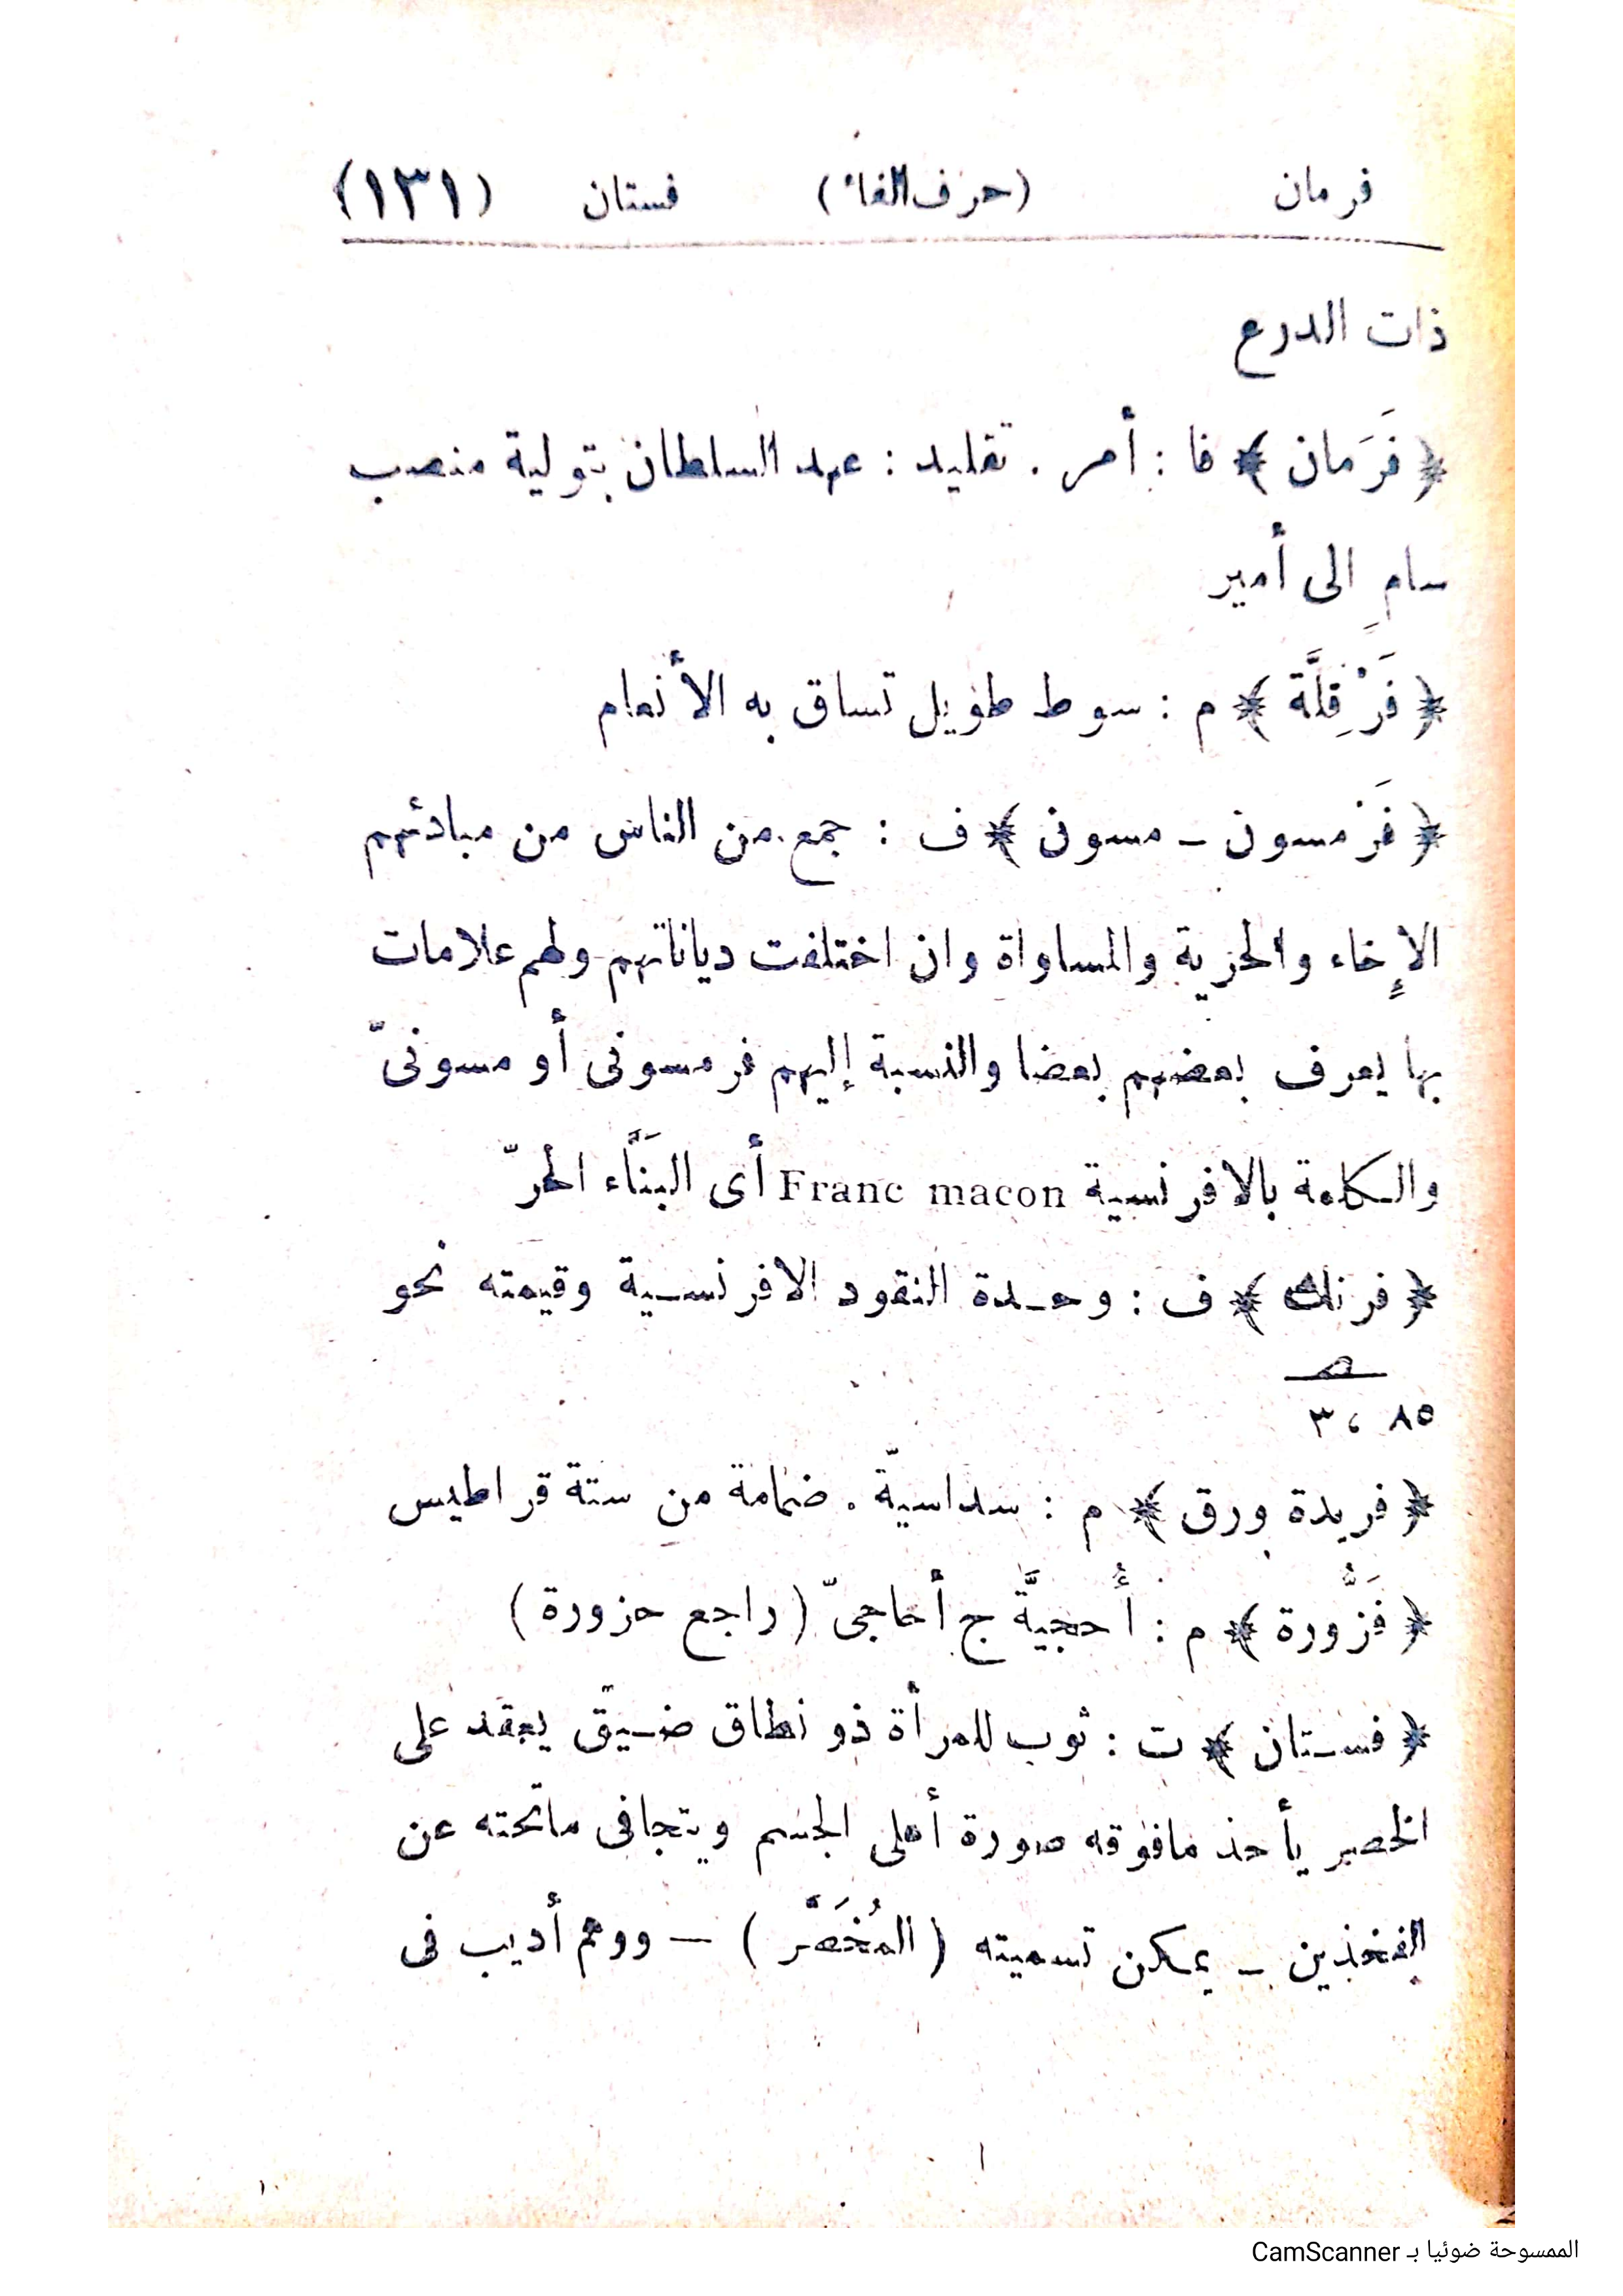 فرمان (حرف الفاء) فستان (١٣١)
ذات الدرع
﴿فَرَمان﴾ فا : أمر . تقليد : عهد السلطان بتولية منصب
سامٍ الى أمير
﴿فَرْقِلَّة﴾ م : سوط طويل تساق به الأنعام
﴿فَرمسون - مسون﴾ ف : جمع من الناس من مبادئهم
الإخاء والحرية والمساواة وان اختلفت دياناتهم ولهم علامات
بها يعرف بعضهم بعضا والنسبة إليهم فرمسونى أو مسونىّ
والكلمة بالافرنسية Franc macon أى البَنَّاء الحرّ
﴿فرنك﴾ ف : وحدة النقود الافرنسية وقيمته نحو
٣،٨٥
﴿فريدة ورق﴾ م : سداسيّة . ضمامة من ستة قراطيس
﴿فَزُّورة﴾ م : أُحجيَّة ج أحاجىّ (راجع حزورة)
﴿فستان﴾ ت : ثوب للمرأة ذو نطاق ضيّق يعقد على
الخصر يأخذ مافوقه صورة أعلى الجسم ويتجافى ماتحته عن
الفخذين - يمكن تسميته (المُخَصَّر) — ووهم أديب فى
الممسوحة ضوئيا بـ CamScanner